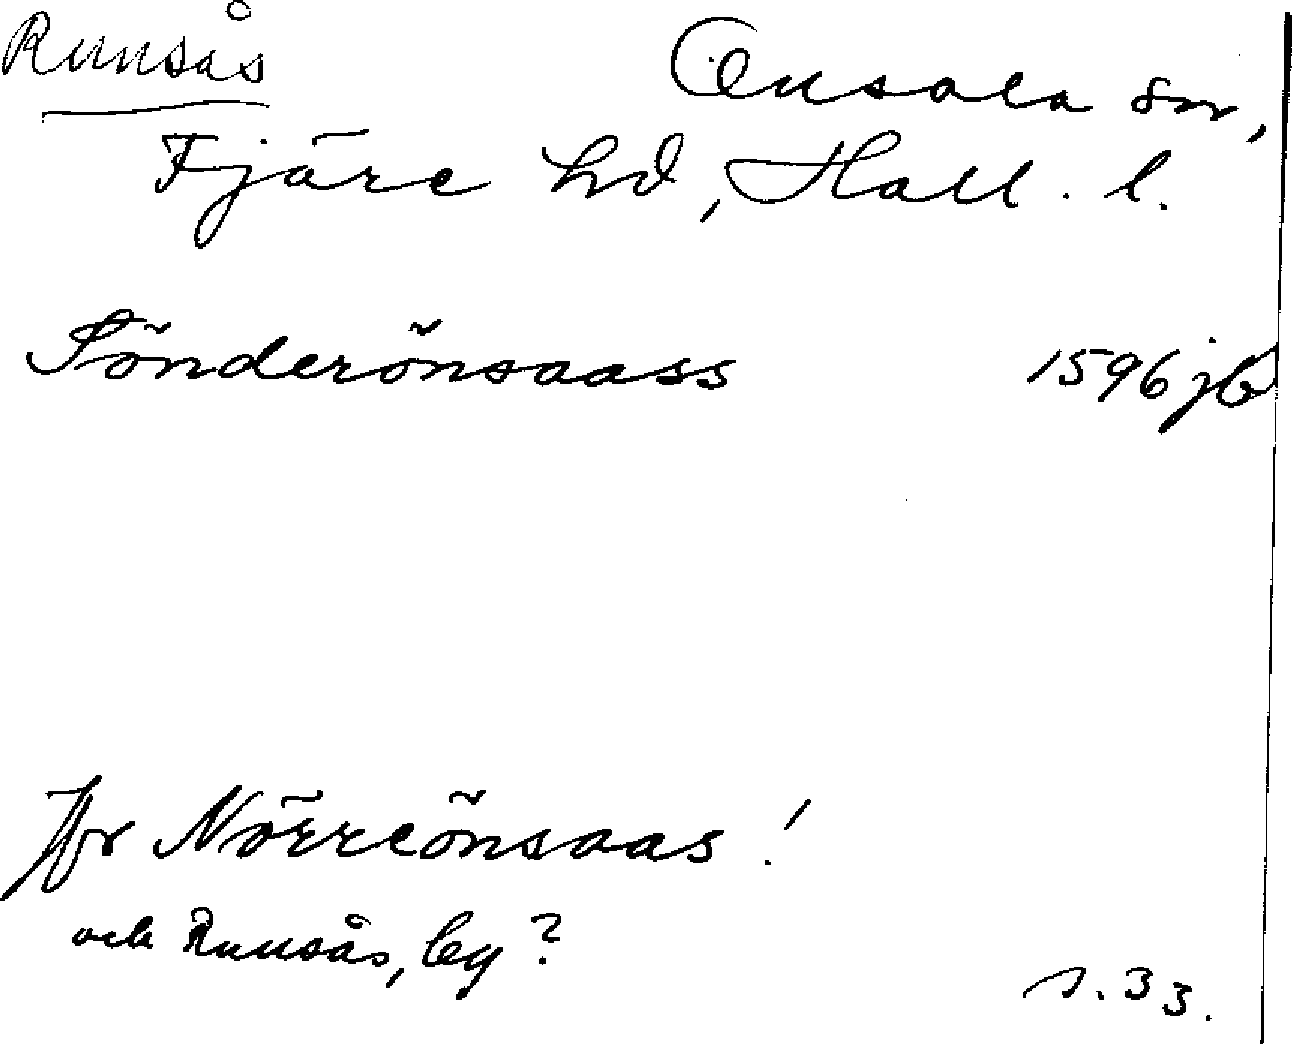 Runsås Onsala sn,
Fjäre hd, Hall. l.
Sönderönsaass 1596 jb
Jfr Nörreönsaas!
och Runsås, by?
s. 33.